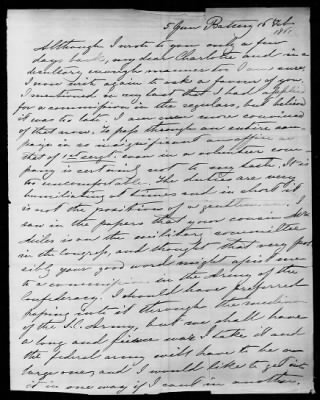 5 Gun Battery 16 Feb
1861
Although I wrote to you only a few
days back, my dear Charlotte and in a
desultory enough manner too I am sure,
I now wish again to ask a favor of you.
I mentioned in my last that I had applied
for a commission in the regulars, but believed
it was too late. I am even more convinced
of that now. To pass through an entire cam-
paign in so insignificant an office as
that of 1st sergt. even in a volunteer com-
pany is certainly not to my taste. It is
too uncomfortable. The duties are very
humiliating at times and in short it
is not the position of a gentleman. I
saw in the papers that your cousin Mr
Miles is on the military committee
in the Congress, and thought that very pos-
sibly your good word might assist me
to a commission in the Army of the
Confederacy. I should have preferred
passing into it through the medium
of the S.C. Army, but we shall have
a long and fierce war I take it and
the federal army will have to be a
large one, and I would like to get into
it in one way if I can't in another.